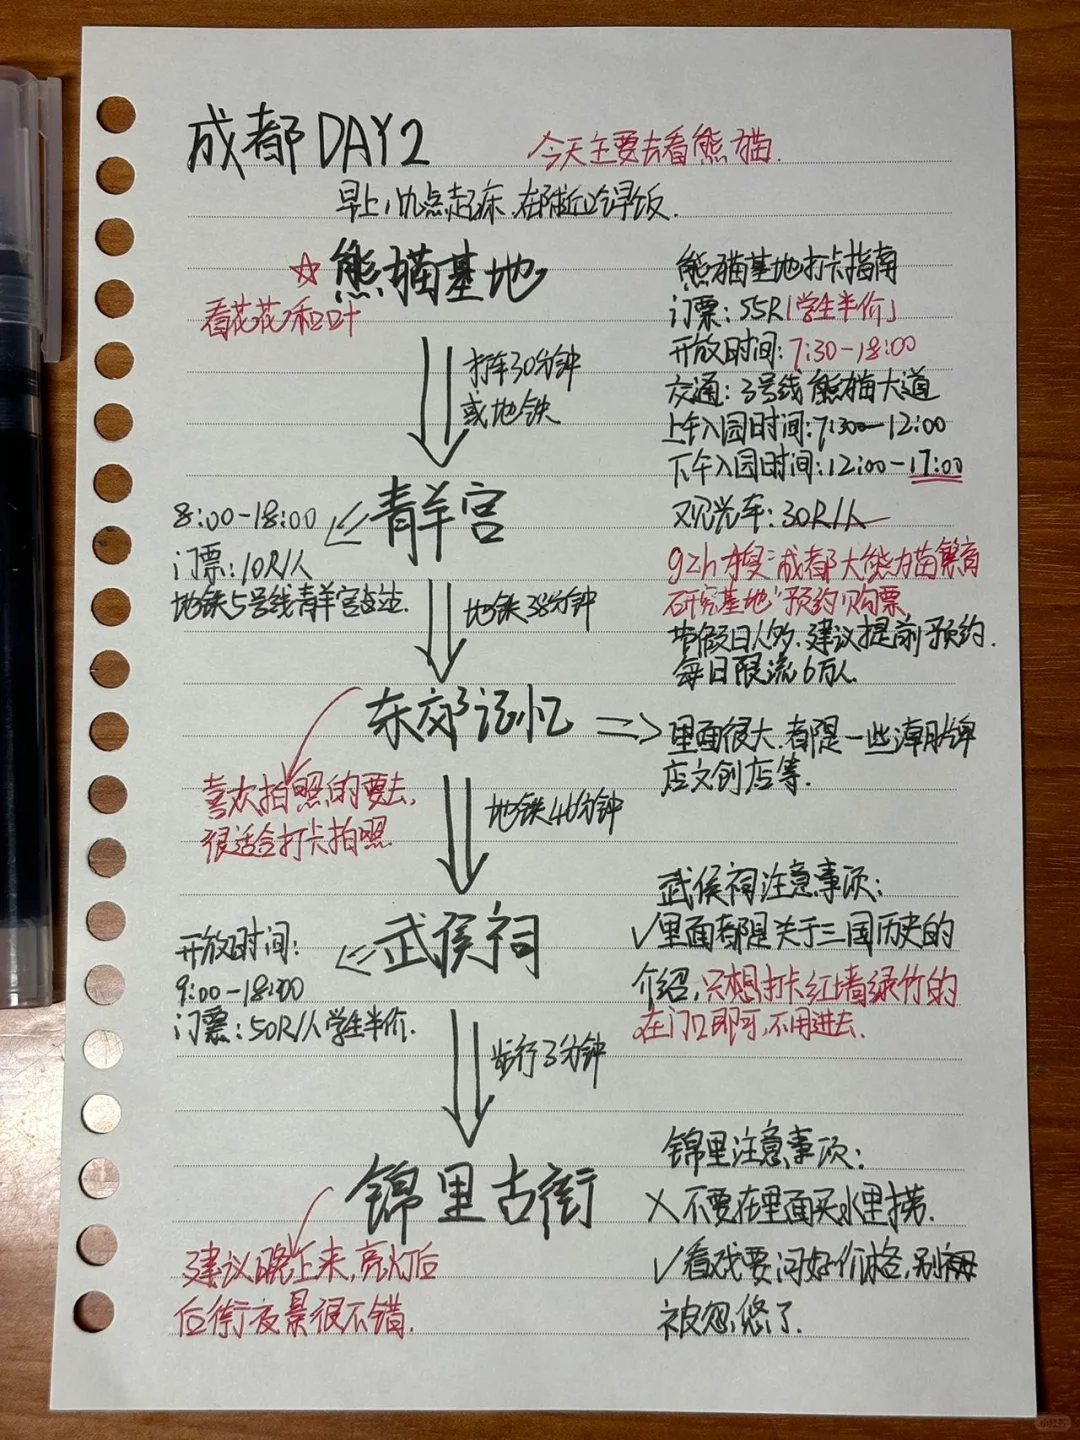 成都DAY2
今天主要去看熊猫.
早上八九点起床,在附近吃早饭.
☆熊猫基地
看花花和叶
打车30分钟
或地铁
熊猫基地打卡指南
门票:55R「学生半价」
开放时间:7:30-18:00
交通:3号线熊猫大道
上午入园时间:7:30-12:00
下午入园时间:12:00-17:00
观光车:30R/人
搜"成都大熊猫繁育
研究基地"预约购票
节假日人多.建议提前预约.
每日限流6万人
青羊宫
8:00-18:00
门票:10R/人
地铁5号线青羊宫站.
地铁38分钟
东郊记忆
里面很大.都是一些潮牌
店文创店等.
喜欢拍照的要去,
很适合打卡拍照.
地铁46分钟
武侯祠
开放时间:
9:00-18:00
门票:50R/人学生半价.
武侯祠注意事项:
✓里面都是关于三国历史的
介绍,只想打卡红墙绿竹的
在门口即可,不用进去.
步行3分钟
锦里古街
建议晚上来,亮灯后
后街夜景很不错.
锦里注意事项:
×不要在里面买水里捞.
✓看戏要问好价格,别
被忽悠了.
小红书